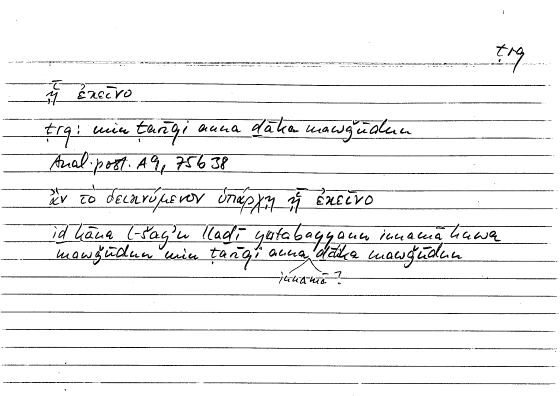 ṭrq
ᾗ ἐκεῖνο
ṭrq: min ṭarīqi anna ḏāka mawǧūdun
Anal. post. A 9, 75b38
ἂν τὸ δεικνύμενον ὑπάρχῃ ᾗ ἐκεῖνο
iḏ kāna l-šayʾu llaḏī yatabayyanu innamā huwa
mawǧūdun min ṭarīqi anna ḏāka mawǧūdun
innamā?